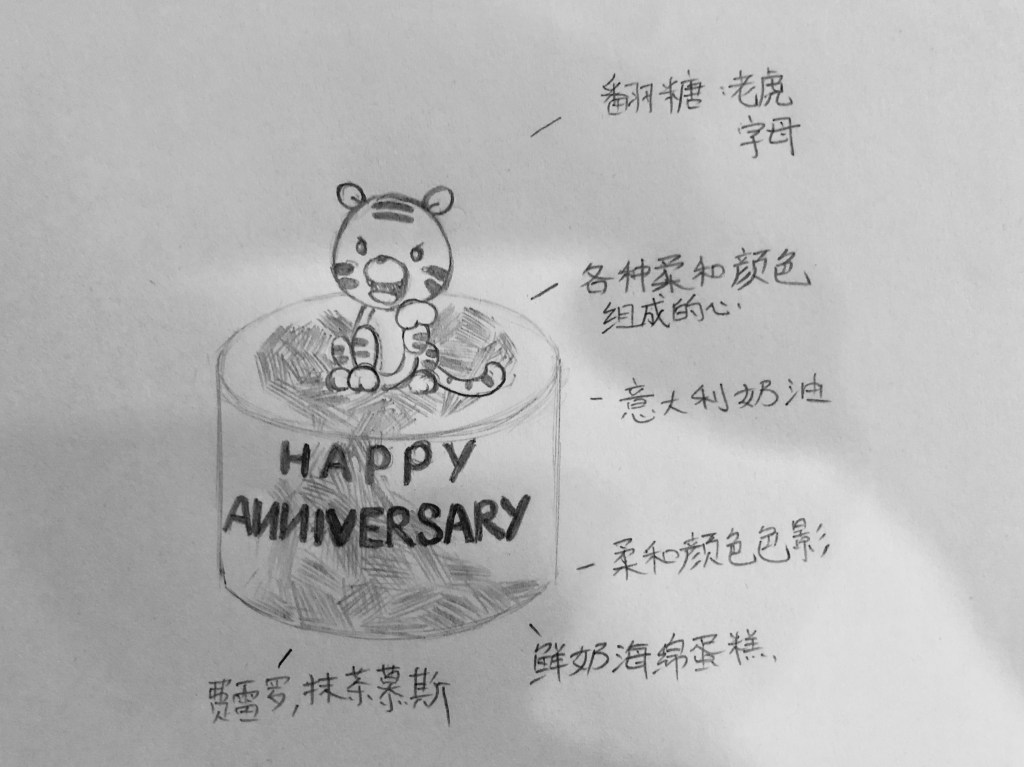 翻糖:老虎
字母
各种柔和颜色
组成的心.
- 意大利奶油
HAPPY
ANNIVERSARY
- 柔和颜色色影
鲜奶海绵蛋糕.
费雷罗,抹茶慕斯